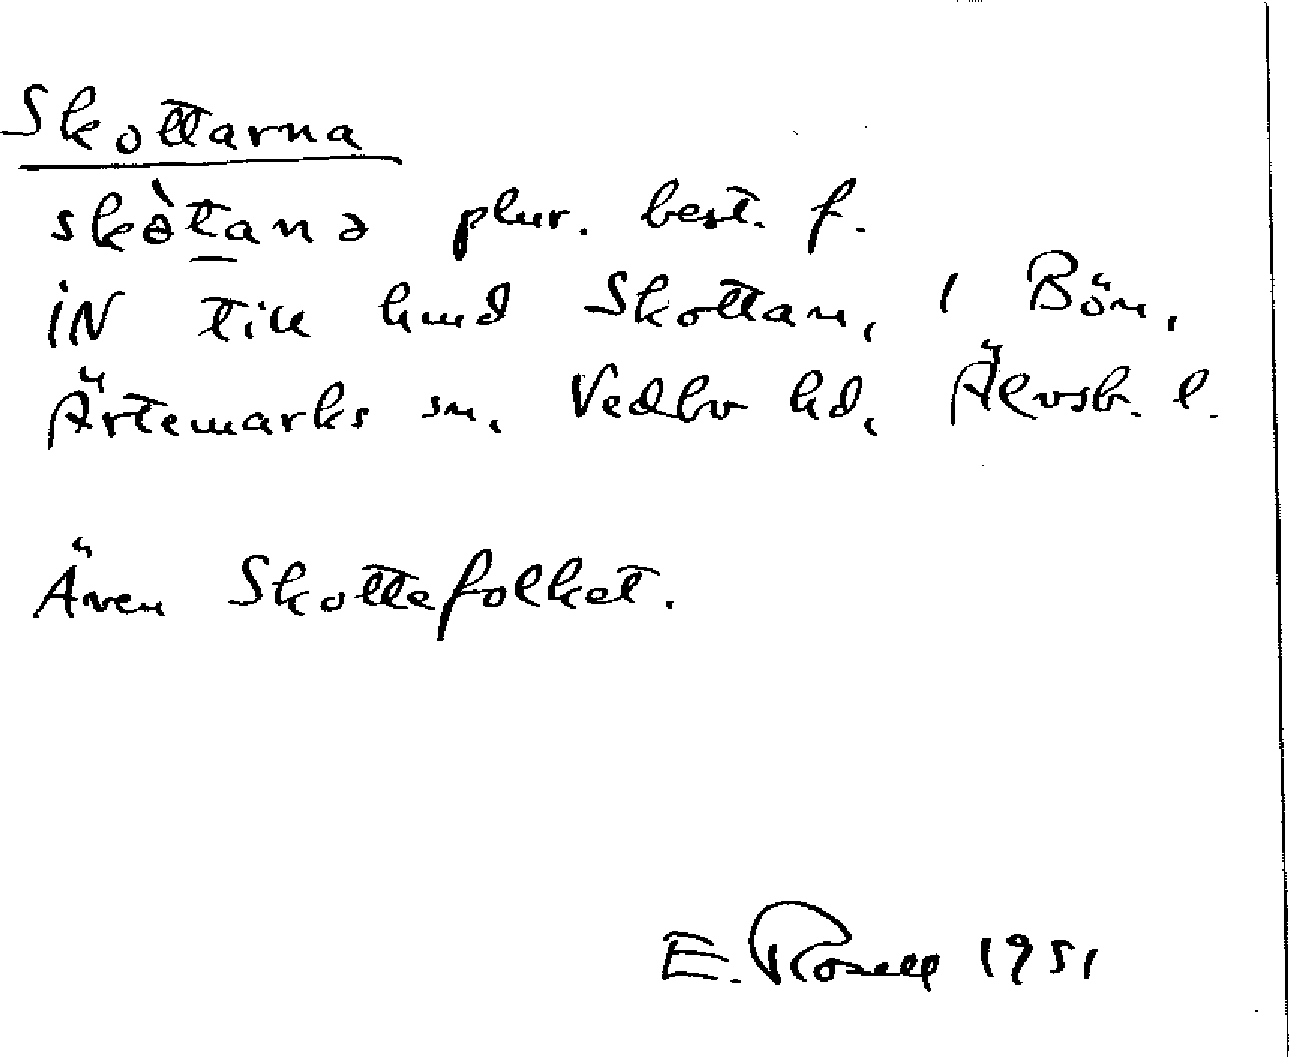 Skottarna
skòtanə plur. best. f.
iN till hmd Skottan, 1 Bön,
Ärtemarks sn, Vedbo hd, Älvsb. l.
Även Skottefolket.
E. Rosell 1951